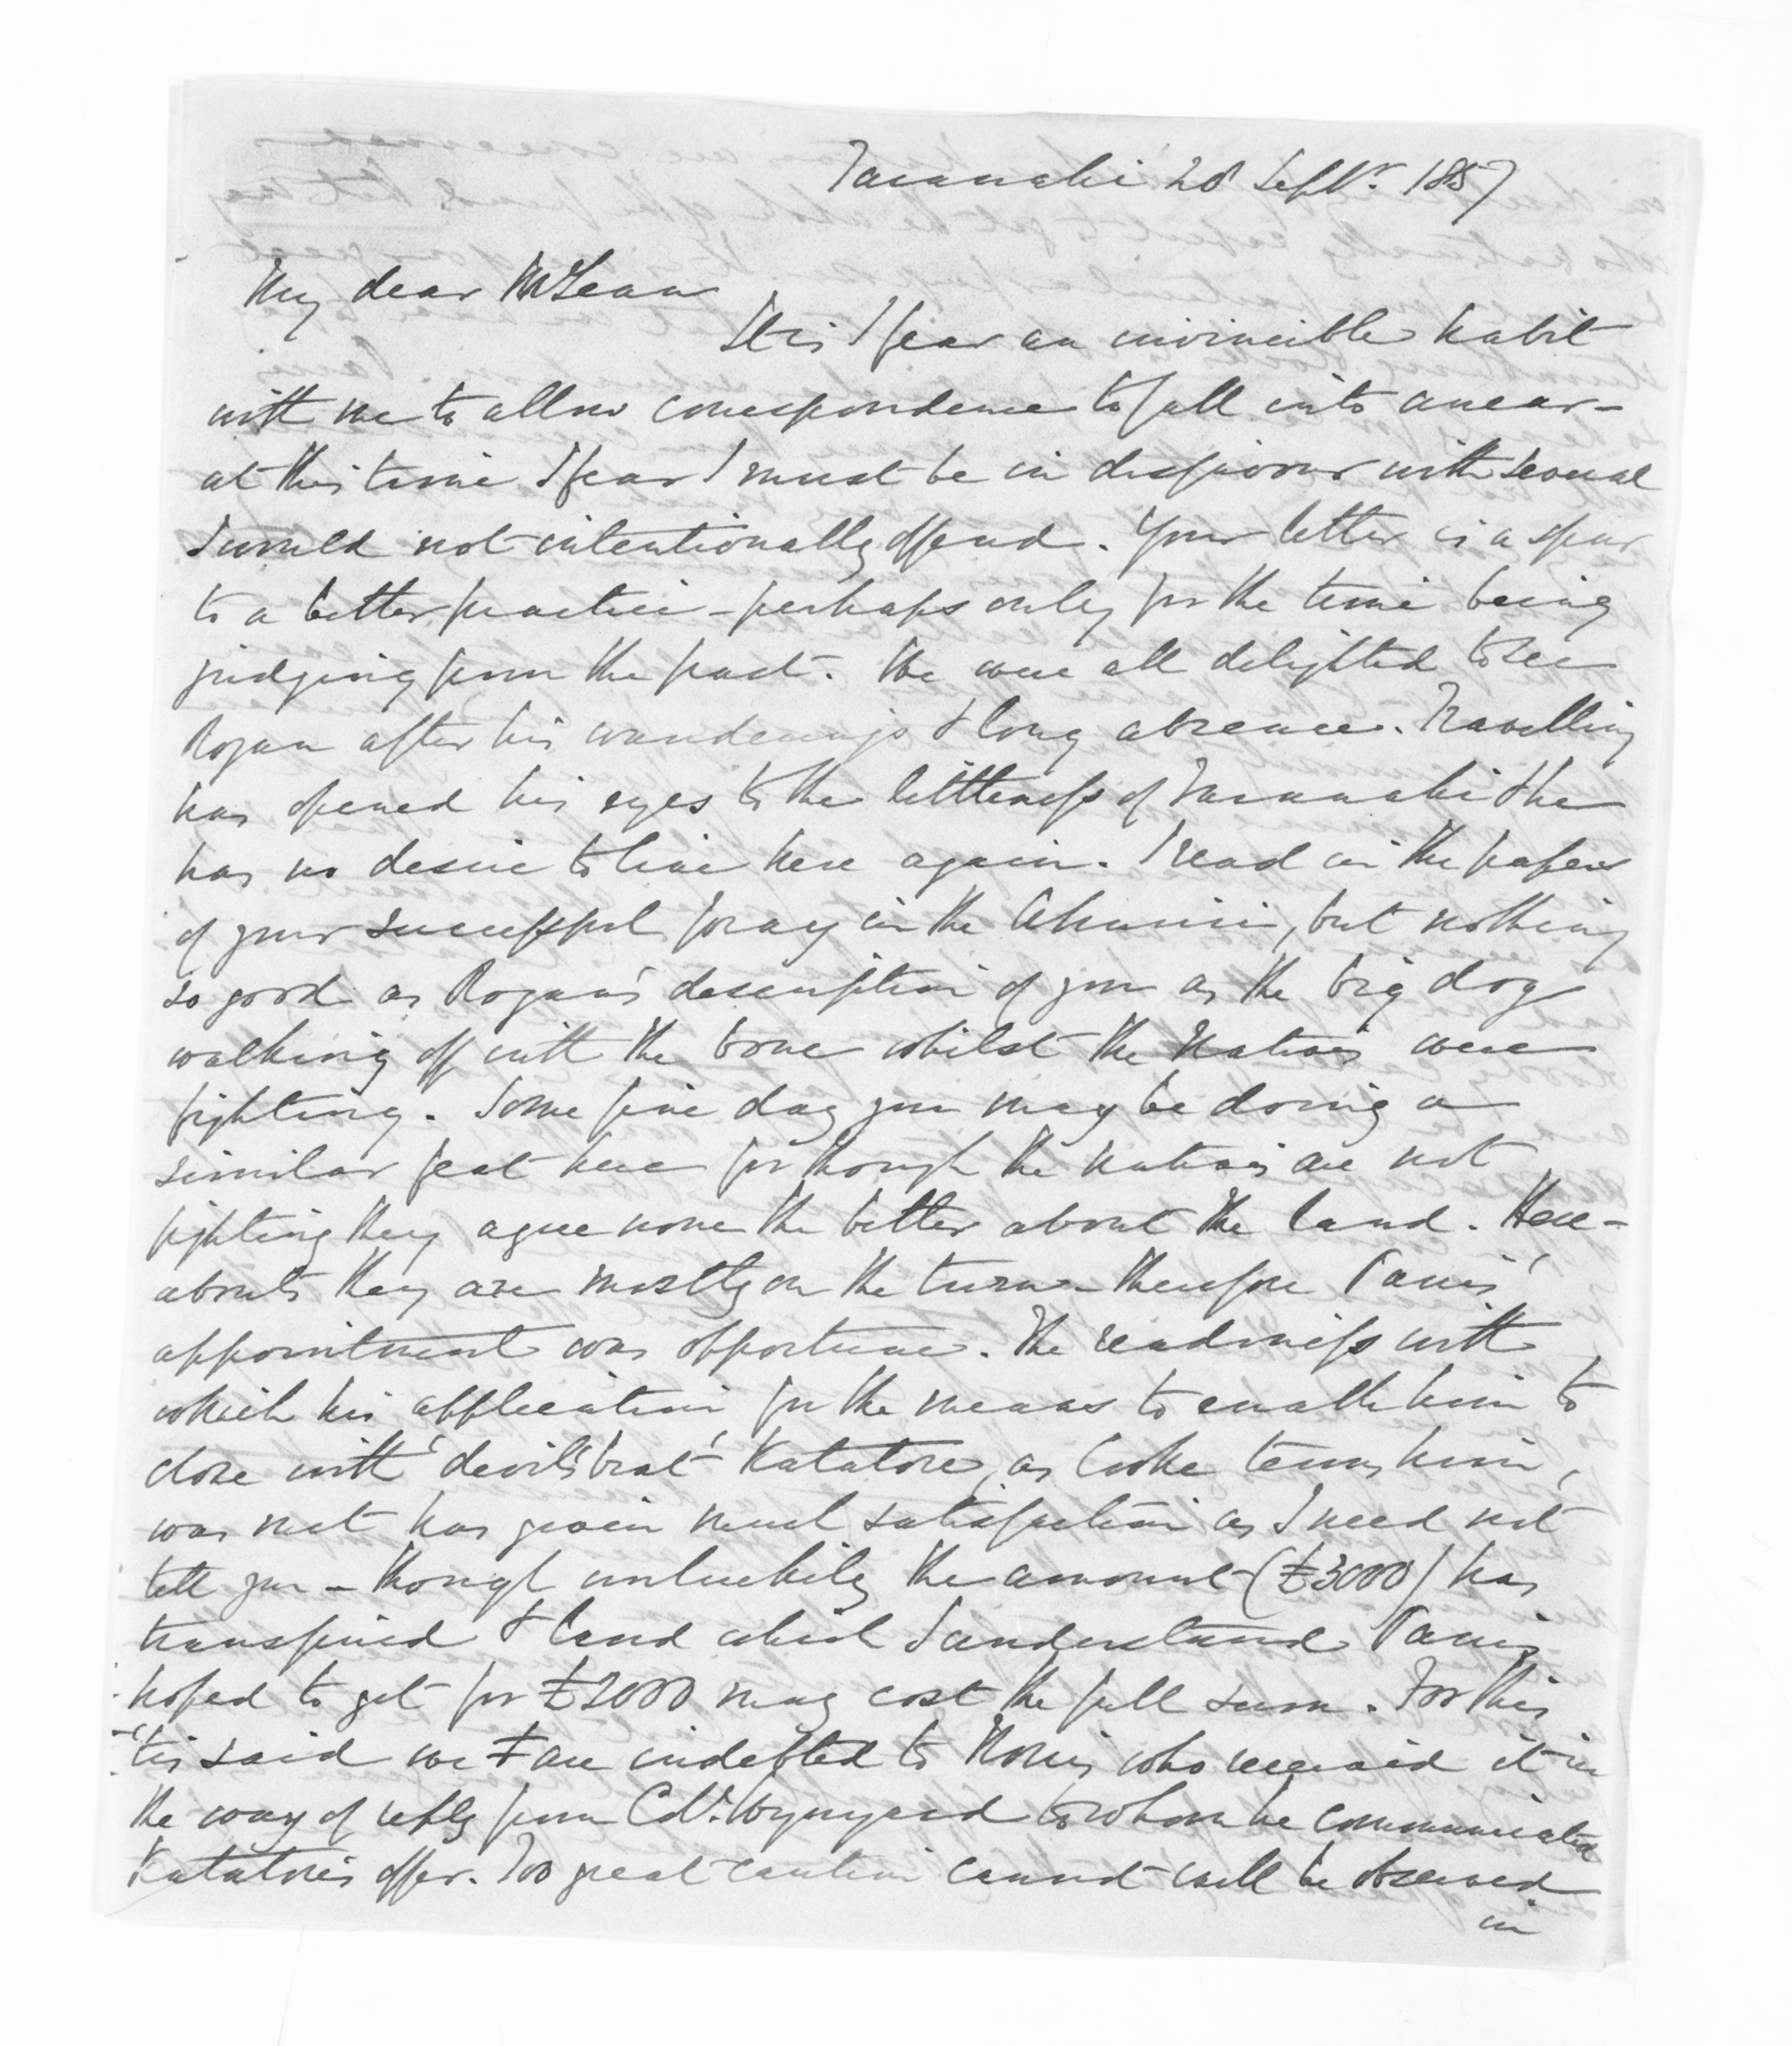 Taranaki 28 Septr. 1857
My dear McLean
It is I fear an invincible habit
with me to allow correspondence to fall into arrear -
at this time I fear I must be in disfavour with several
I would not intentionally offend. Your letter is a spur
to a better practice - perhaps only for the time being
judging from the past. We were all delighted to see
Rogan after his wanderings & long absence. Travelling
has opened his eyes to the littleness of Taranaki & he
has no desire to live here again. I read in the papers
of your successful foray in the Ahuriri, but nothing
so good as Rogan's description of you as the big dog
walking off with the bone whilst the Natives were
fighting. Some fine day you may be doing a
similar feat here for though the natives are not
fighting they agree none the better about the land. Here-
abouts they are mostly on the turn - therefore Parris'
appointment was opportune. The readiness with
which his application for the means to enable him to
close with 'devil's brat' Katatore, as Cooke terms him,
was met has given much satisfaction as I need not
tell you - though unluckily the amount (£3000) has
transpired & land which I understand Parris
hoped to get for £2000 may cost the full sum. For this
'tis said we are indebted to who received it in
the way of reply from Col. Wynyard to whom he communicated
Katatore's offer. Too great caution cannot well be observed
in